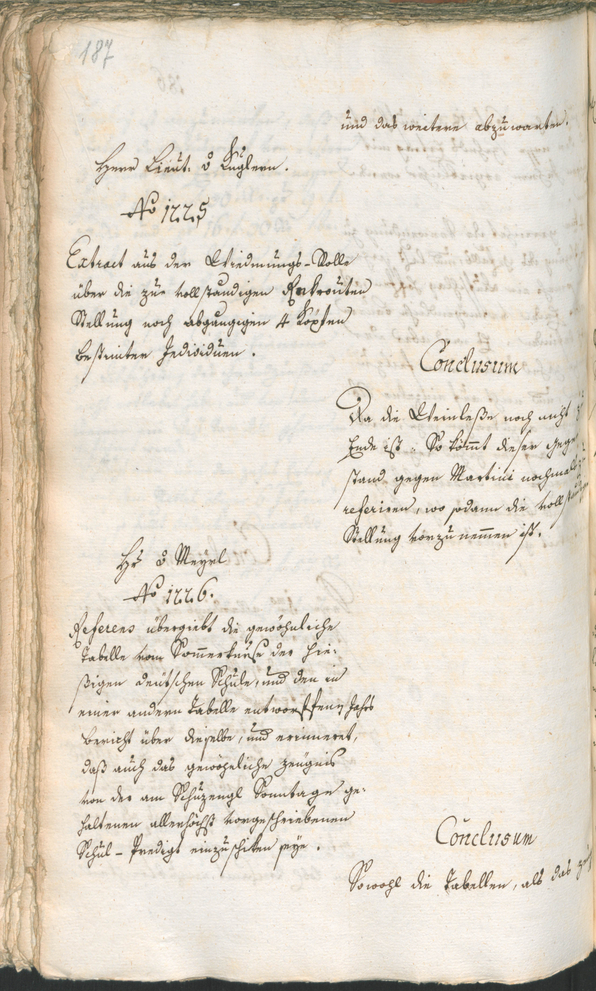 187
und das weitere abzuwarten.
Herr Lieut. v Kuglern.
No 1225
Extract aus der Widmungs-Rolle
über die zur vollständigen Rekrouten
Stellung noch abgängigen 4 Köpfen
bestimten Individuen.
Conclusum
Da die Weinlese noch nicht
Ende ist. So kömt dieser Gegen
stand gegen Martini nochmals
referiren, wo sodann die voll
Stellung vorzunemmen ist.
Hr v Meyrl
No 1226.
Referens übergiebt die gewöhnliche
Tabelle vom Sommerkurse der hie-
sigen deutschen Schule, und den in
einer andern Tabelle entworffenen Jahrs
bericht über dieselbe, und erinneret,
daß auch das gewöhnliche Zeugnis
von der am Schuzengl Sonntage ge-
haltenen allerhöchst vorgeschriebenen
Schul-Predigt einzuschiken seye.
Conclusum
Sowohl die Tabellen, als das